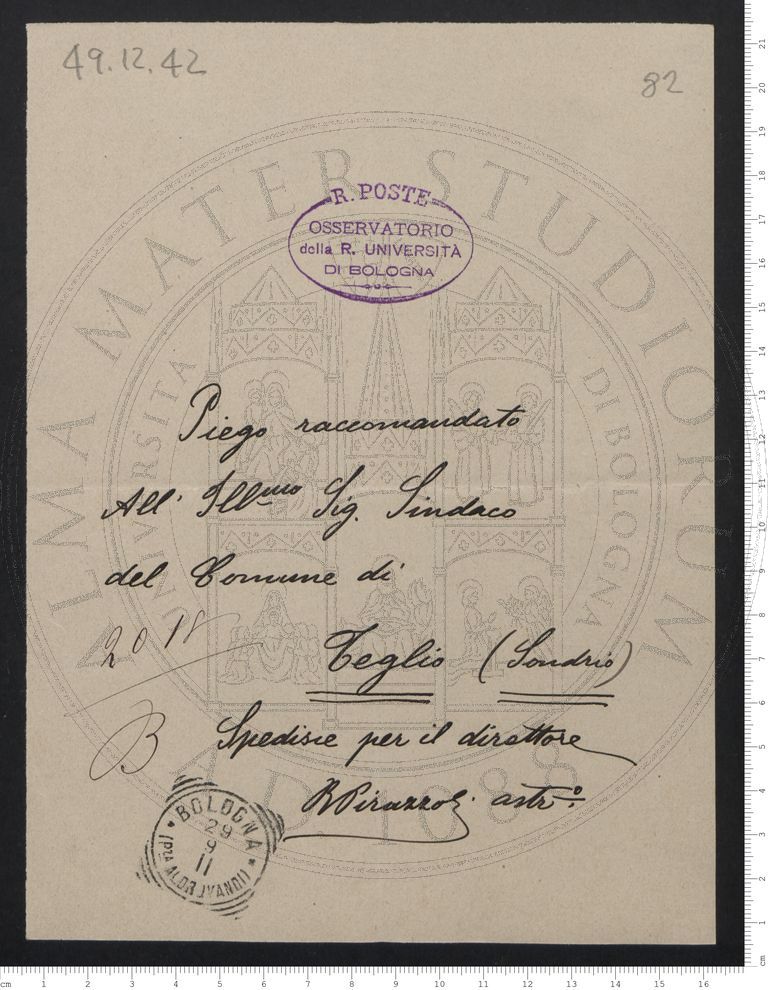 49.12.42
82
R. POSTE
OSSERVATORIO
della R. UNIVERSITÀ
DI BOLOGNA
ALMA MATER STUDIORUM
UNIVERSITÀ DI BOLOGNA
A.D. 1088
Piego raccomandato
All' Ill.mo Sig. Sindaco
del Comune di
Teglio (Sondrio)
Spedisce per il direttore
R Pirazzoli astr.o
B
BOLOGNA
29
9
11
(PZA ALDROVANDI)